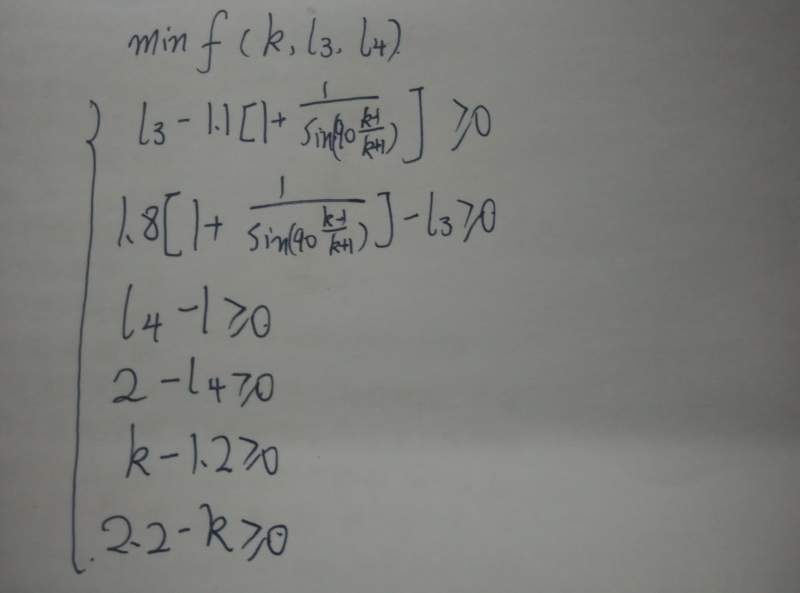 min f(k, l₃, l₄).
l₃ - 1.1[1 + 1/sin(90 (k-1)/(k+1))] ≥ 0
1.8[1 + 1/sin(90 (k-1)/(k+1))] - l₃ ≥ 0
l₄ - 1 ≥ 0
2 - l₄ ≥ 0
k - 1.2 ≥ 0
2.2 - k ≥ 0